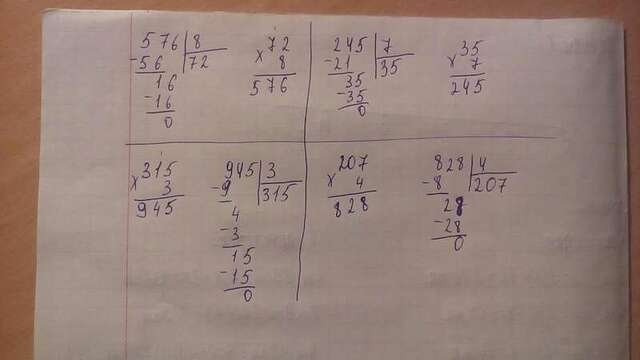 576 | 8
-56 | 72
16
-16
0
72
× 8
576
245 | 7
-21 | 35
35
-35
0
35
× 7
245
315
× 3
945
945 | 3
-9 | 315
4
-3
15
-15
0
207
× 4
828
828 | 4
-8 | 207
28
-28
0